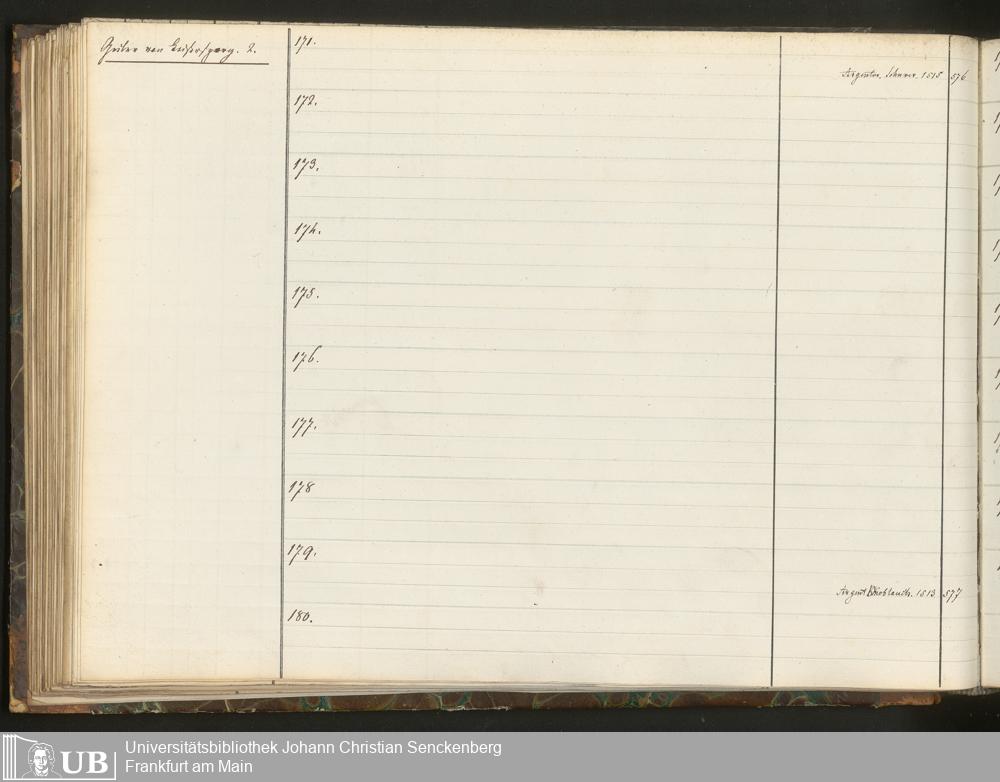 Geiler von Keisersperg. 2.
171.
Argentor. Schurer. 1515 576
172.
173.
174.
175.
176.
177.
178
179.
Argent Knoblauch. 1513 577
180.
UB
Universitätsbibliothek Johann Christian Senckenberg
Frankfurt am Main